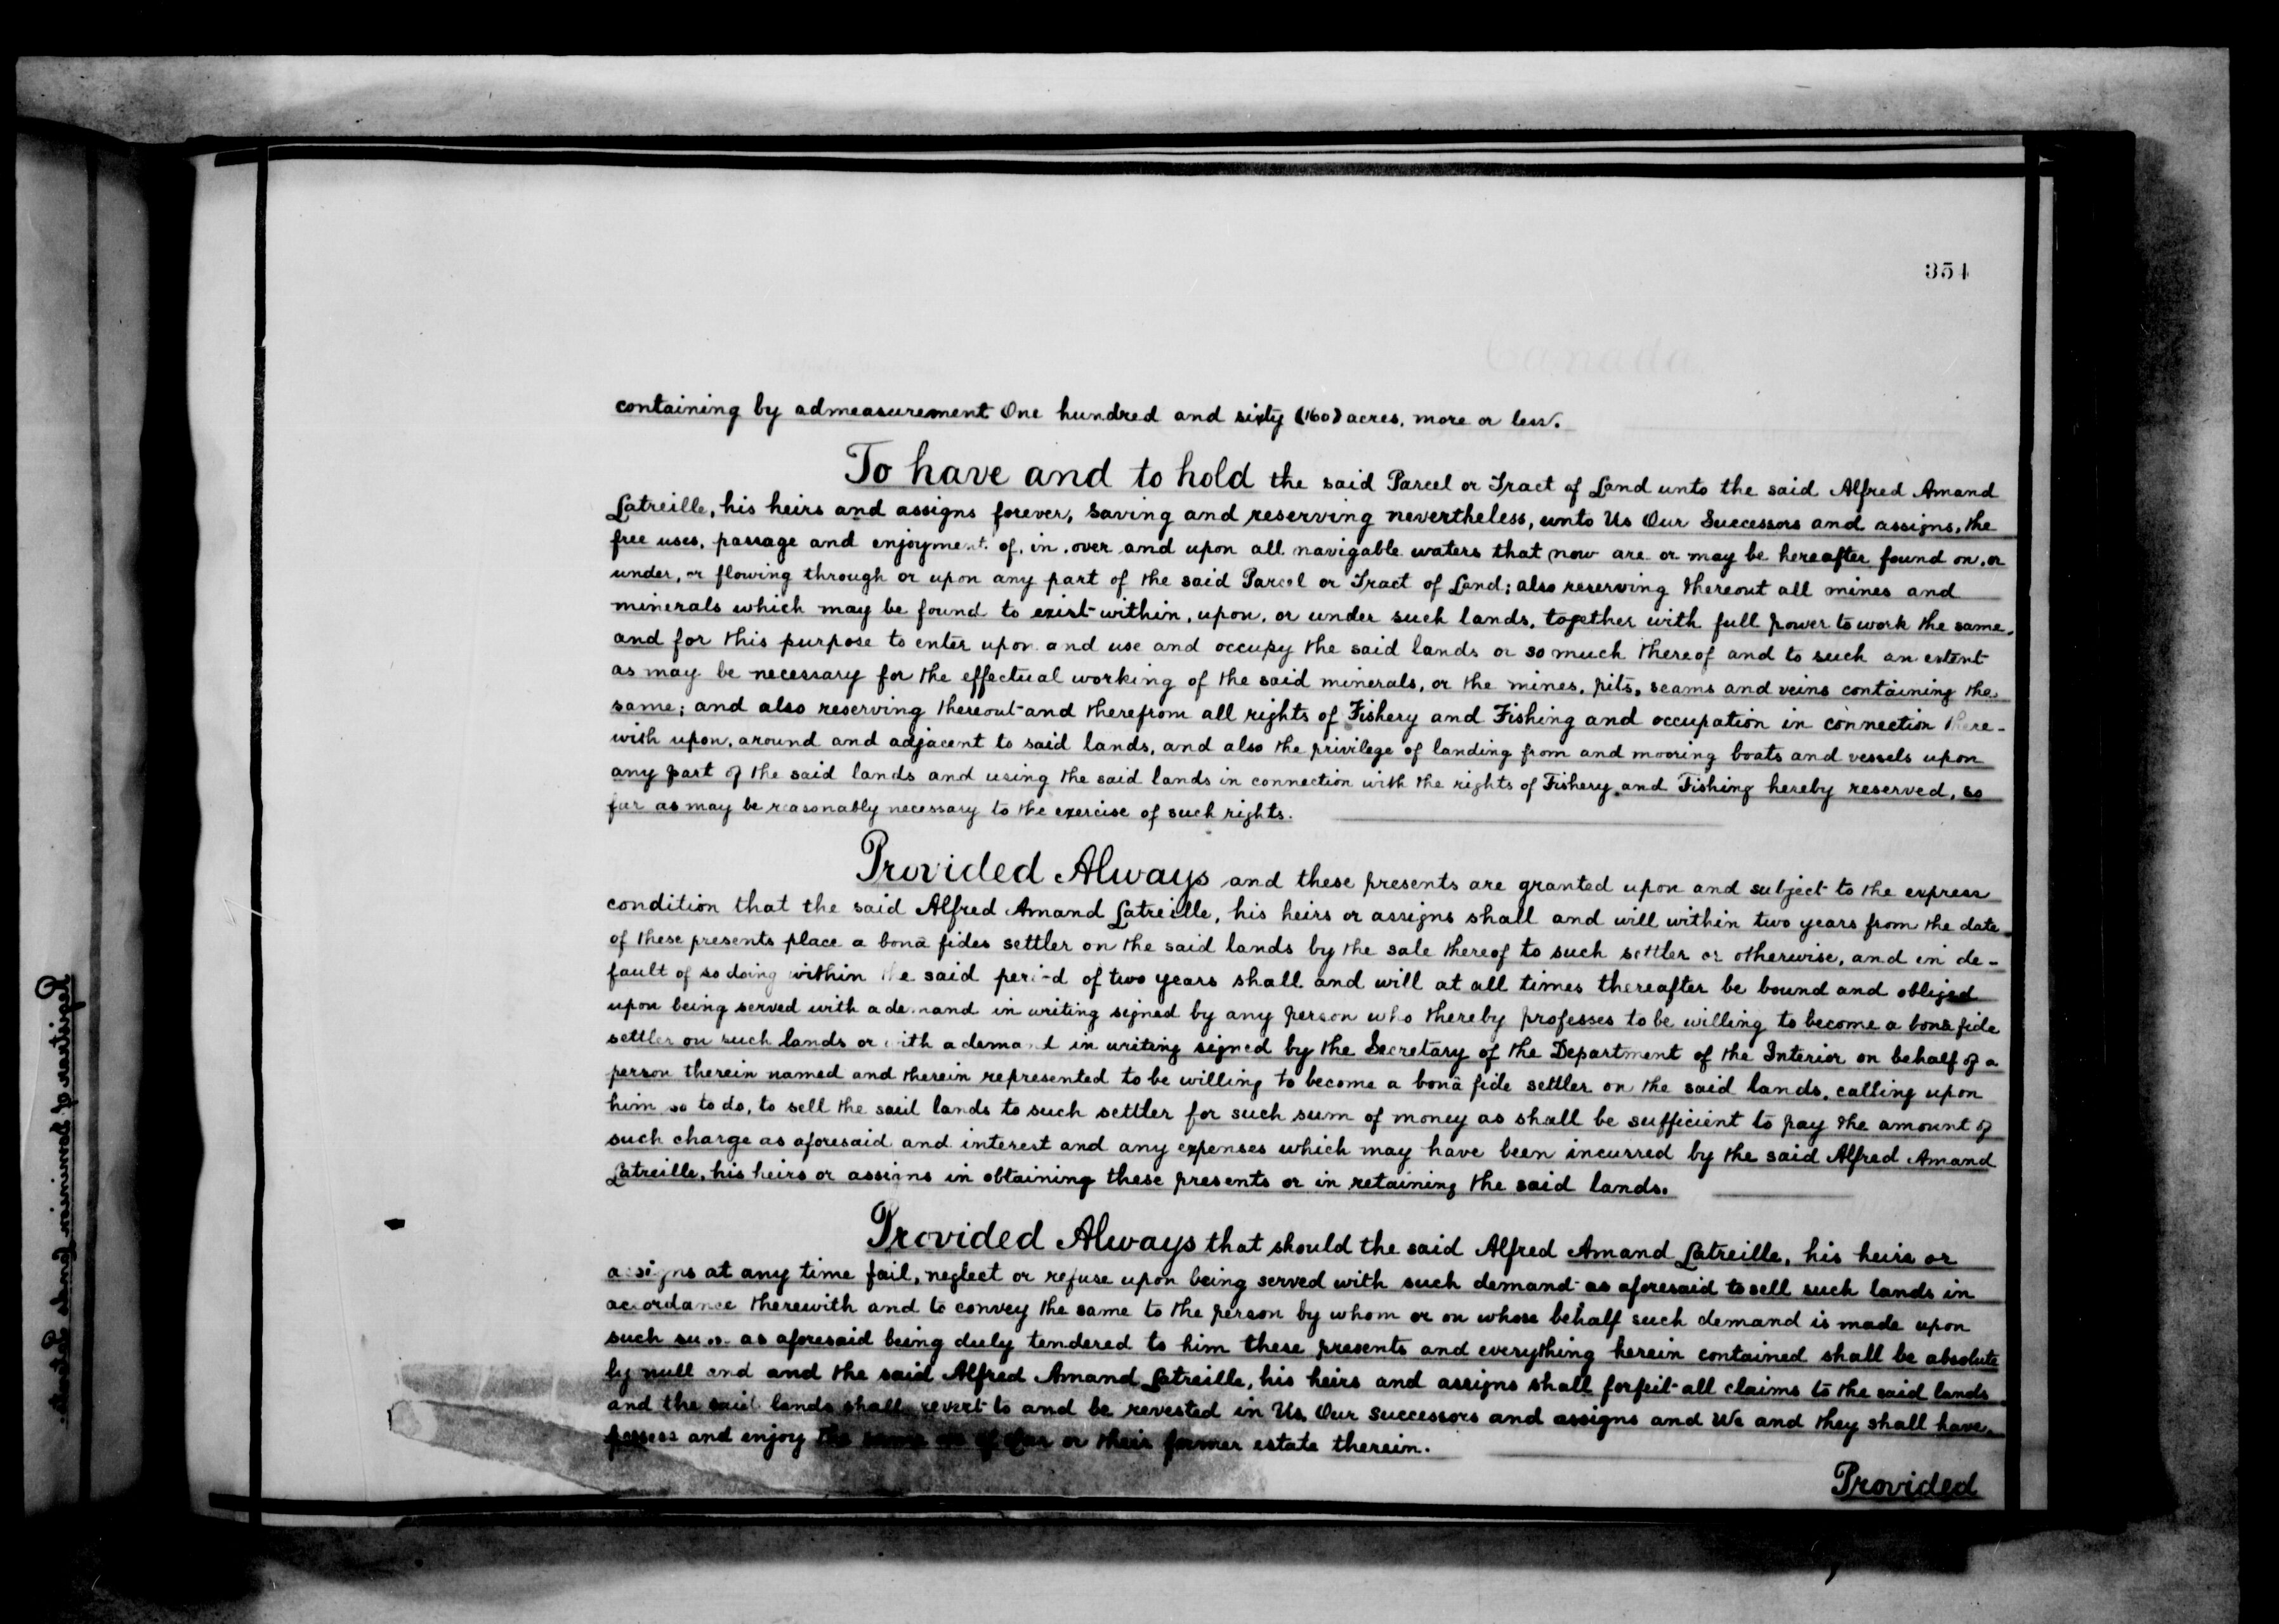 354
Canada
containing by admeasurement One hundred and sixty (160) acres, more or less.
To have and to hold the said Parcel or Tract of Land unto the said Alfred Amand
Latreille, his heirs and assigns forever, saving and reserving nevertheless, unto Us Our Successors and assigns, the
free uses, passage and enjoyment of, in, over and upon all navigable waters that now are or may be hereafter found on, or
under, or flowing through or upon any part of the said Parcel or Tract of Land; also reserving thereout all mines and
minerals which may be found to exist within, upon, or under such lands, together with full power to work the same,
and for this purpose to enter upon and use and occupy the said lands or so much thereof and to such an extent
as may be necessary for the effectual working of the said minerals, or the mines, pits, seams and veins containing the
same; and also reserving thereout and therefrom all rights of Fishery and Fishing and occupation in connection there-
with upon, around and adjacent to said lands, and also the privilege of landing from and mooring boats and vessels upon
any part of the said lands and using the said lands in connection with the rights of Fishery and Fishing hereby reserved, so
far as may be reasonably necessary to the exercise of such rights.
Provided Always and these presents are granted upon and subject to the express
condition that the said Alfred Amand Latreille, his heirs or assigns shall and will within two years from the date
of these presents place a bonâ fides settler on the said lands by the sale thereof to such settler or otherwise, and in de-
fault of so doing within the said period of two years shall and will at all times thereafter be bound and obliged
upon being served with a demand in writing signed by any person who thereby professes to be willing to become a bonâ fide
settler on such lands or with a demand in writing signed by the Secretary of the Department of the Interior on behalf of a
person therein named and therein represented to be willing to become a bonâ fide settler on the said lands, calling upon
him so to do, to sell the said lands to such settler for such sum of money as shall be sufficient to pay the amount of
such charge as aforesaid and interest and any expenses which may have been incurred by the said Alfred Amand
Latreille, his heirs or assigns in obtaining these presents or in retaining the said lands.
Provided Always that should the said Alfred Amand Latreille, his heirs or
assigns at any time fail, neglect or refuse upon being served with such demand as aforesaid to sell such lands in
accordance therewith and to convey the same to the person by whom or on whose behalf such demand is made upon
such sum as aforesaid being duly tendered to him these presents and everything herein contained shall be absolute
ly null and and the said Alfred Amand Latreille, his heirs and assigns shall forfeit all claims to the said lands
and the said lands shall revert to and be revested in Us, Our Successors and assigns and We and they shall have,
possess and enjoy the same as of Our or their former estate therein.
Provided
Registrar of Dominion Lands Patents.